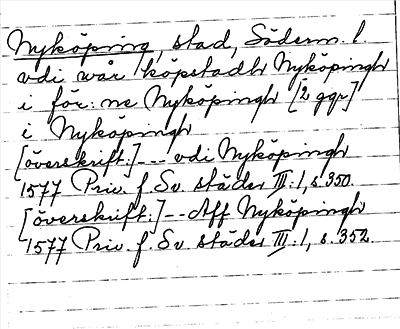 Nyköping, stad, Söderm. l.
vdi wår köpstadh Nyköpingh
i för: ne Nyköpingh [2 ggr]
i Nyköpingh
[överskrift:] --- vdi Nyköpingh
1577 Priv. f. Sv. städer III:1, s. 350.
[överskrift:] -- Aff Nyköpingh
1577 Priv. f. Sv. städer III:1, s. 352.